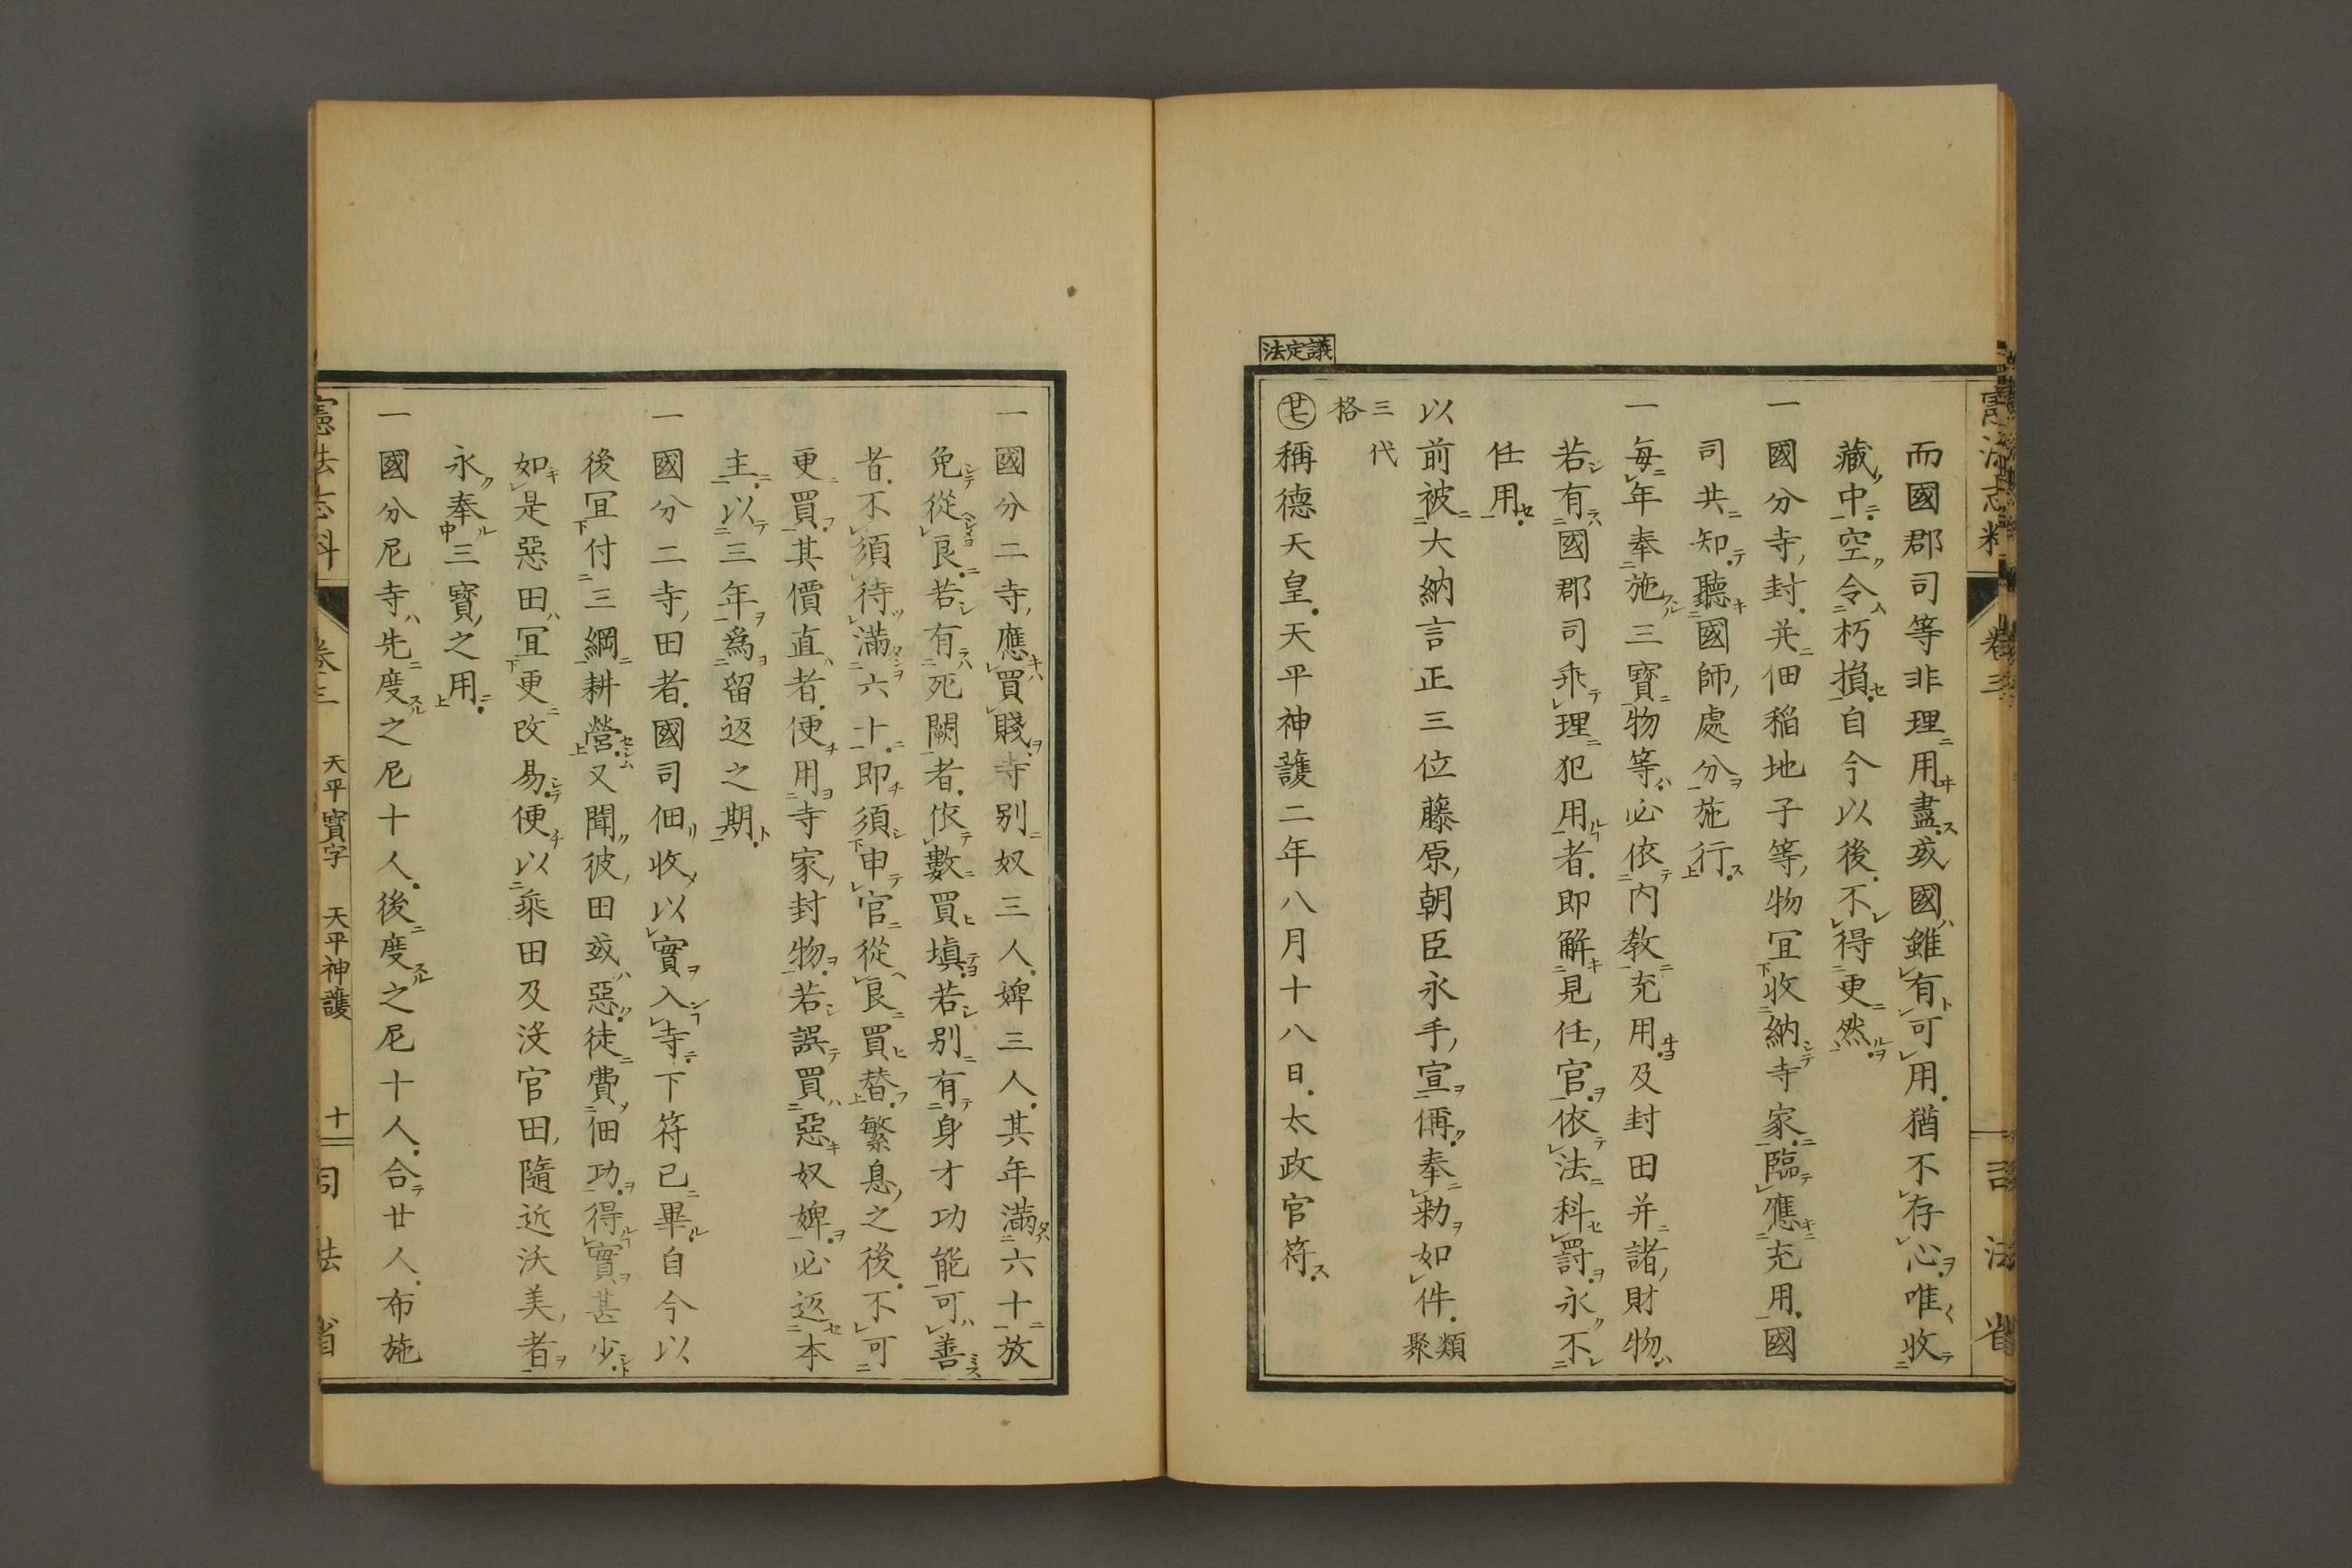 憲法志料
卷三
司法省
而國郡司等非理用盡或國雖有可用猶不存心唯收
藏中空令朽損自今以後不得更然
一國分寺封并佃稻地子等物宜收納寺家臨應充用國
司共知聽國師處分施行
一每年奉施三寶物等必依內教充用及封田并諸財物
若有國郡司乖理犯用者即解見任官依法科罸永不
任用
以前被大納言正三位藤原朝臣永手宣偁奉勅如件類聚
三代格
議定法
廿七
稱德天皇天平神護二年八月十八日太政官符
一國分二寺應買賤寺別奴三人婢三人其年滿六十放
免從良若有死闕者依數買塡若別有身才功能可善
者不須待滿六十即須申官從良買替繁息之後不可
更買其價直者便用寺家封物若誤買惡奴婢必返本
主以三年爲留返之期
一國分二寺田者國司佃收以實入寺下符已畢自今以
後宜付三綱耕營又聞彼田或惡徒費佃功得實甚少
如是惡田宜更改易便以乘田及沒官田隨近沃美者
永奉三寶之用
一國分尼寺先度之尼十人後度之尼十人合廿人布施
憲法志料
卷三
天平寶字
天平神護
十
司法省